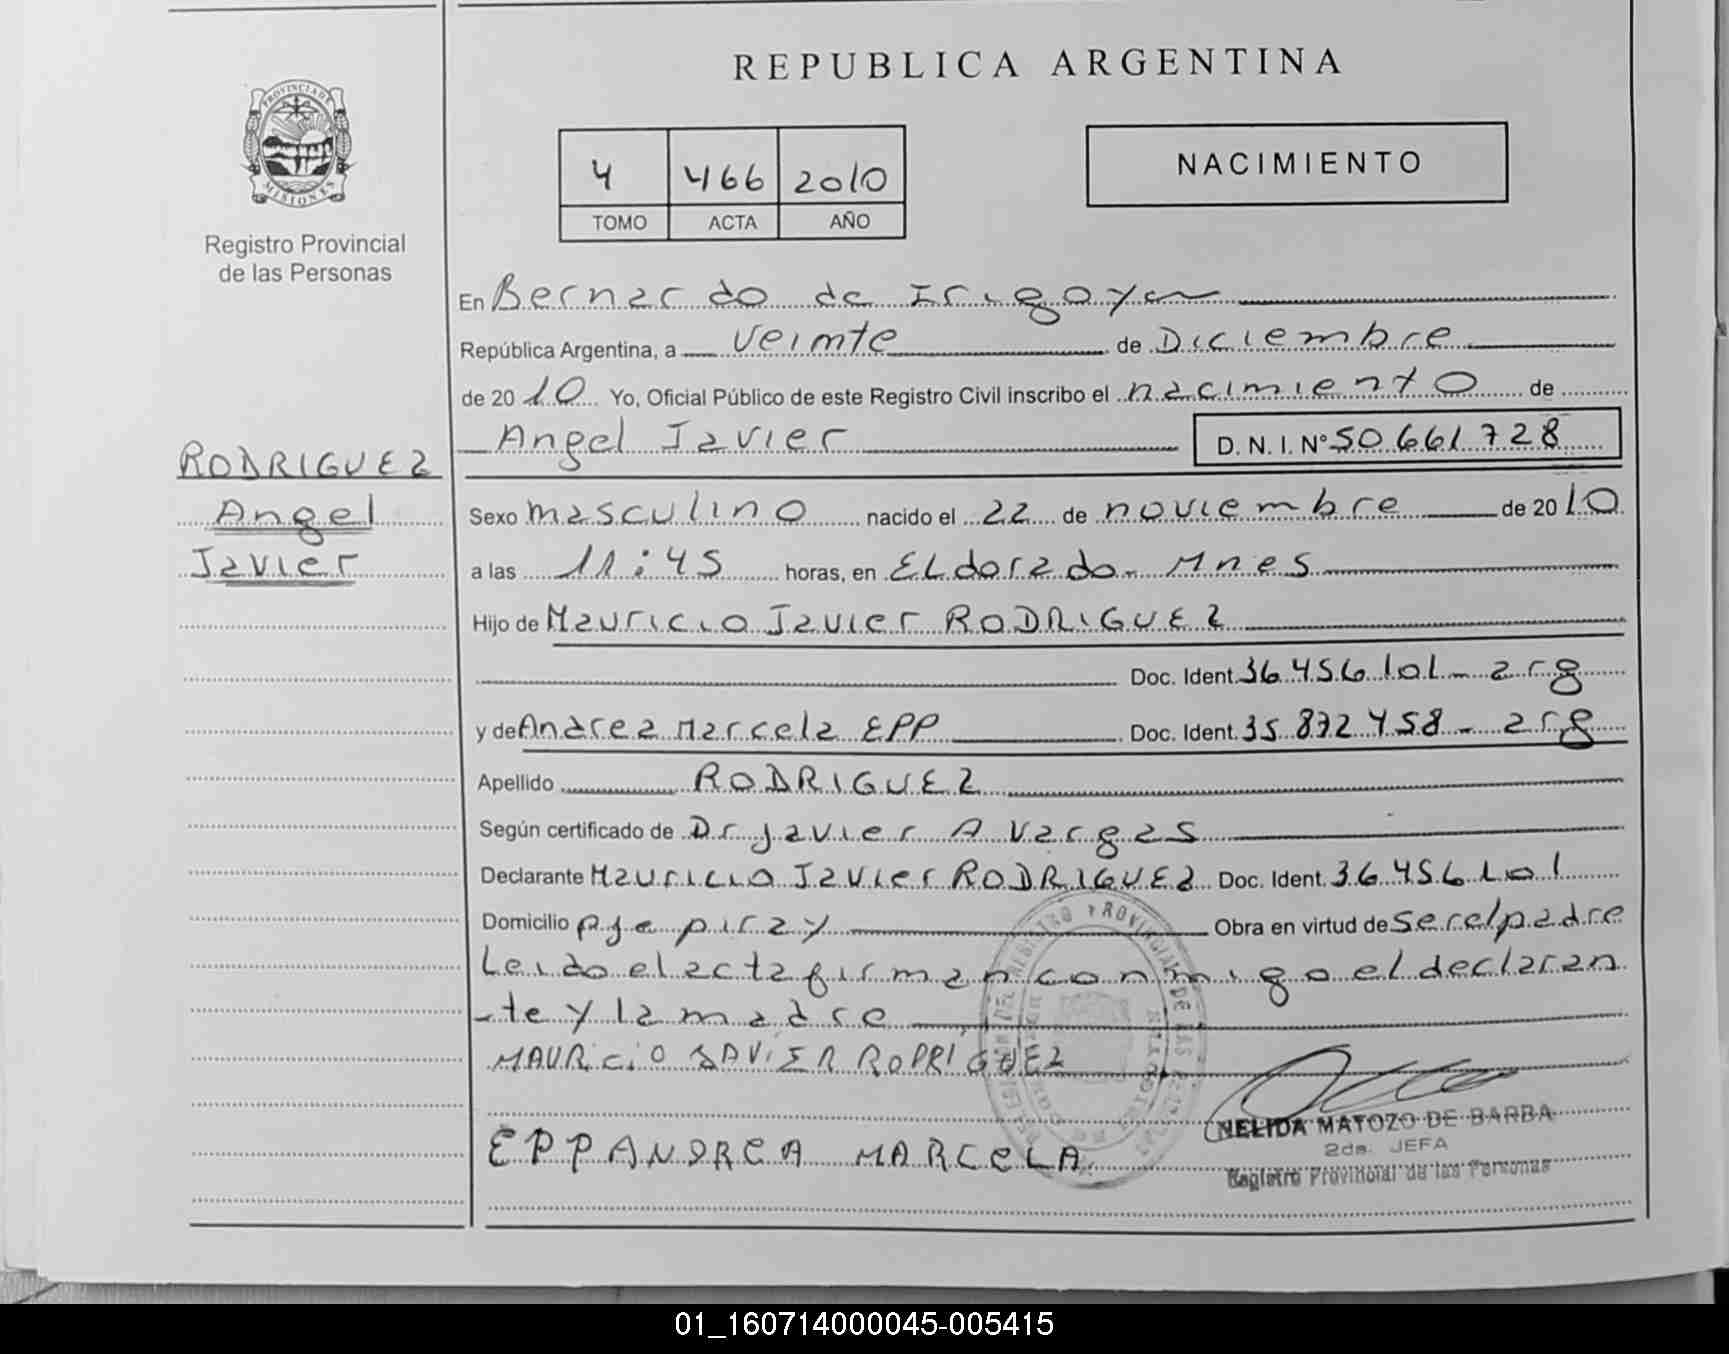 REPUBLICA ARGENTINA
PROVINCIA DE MISIONES
Registro Provincial
de las Personas
4 466 2010
TOMO ACTA AÑO
NACIMIENTO
En Bernardo de Irigoyen
República Argentina, a veinte de Diciembre
de 2010 Yo, Oficial Público de este Registro Civil inscribo el nacimiento de
Angel Javier D. N. I. Nº 50.661.728
RODRIGUEZ
Angel
Javier
Sexo masculino nacido el 22 de noviembre de 2010
a las 11:45 horas, en ELdorado- Mnes
Hijo de Mauricio Javier RODRIGUEZ
Doc. Ident. 36.456.101 - arg
y de Andrea Marcela EPP Doc. Ident. 35.872.458 - arg
Apellido RODRIGUEZ
Según certificado de Dr Javier A Vargas
Declarante Mauricio Javier RODRIGUEZ Doc. Ident. 36.456.101
Domicilio pje piray Obra en virtud de ser el padre
Leido el acta firman conmigo el declaran
-te y la madre
MAURiCiO JAViER RODRÍGUEZ
EPP ANDREA MARCELA
NELIDA MATOZO DE BARBA
2da. JEFA
Registro Provincial de las Personas
01_160714000045-005415